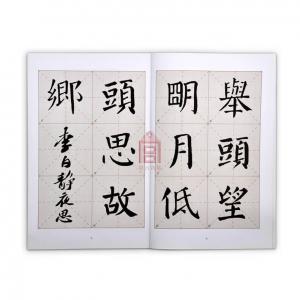 舉頭望
明月低
頭思故
鄉
李白靜夜思